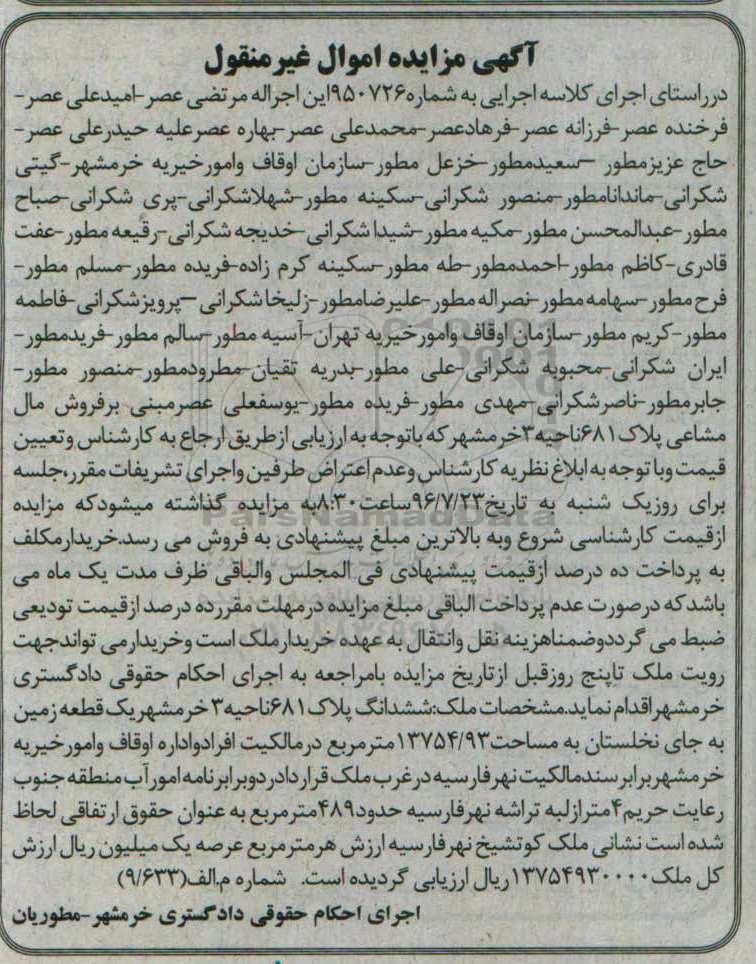 آگهی مزایده اموال غیرمنقول
درراستای اجرای کلاسه اجرایی به شماره۹۵۰۷۲۶این اجراله مرتضی عصر-امیدعلی عصر-
فرخنده عصر-فرزانه عصر-فرهادعصر-محمدعلی عصر-بهاره عصرعلیه حیدرعلی عصر-
حاج عزیزمطور –سعیدمطور-خزعل مطور-سازمان اوقاف وامورخیریه خرمشهر-گیتی
شکرانی-ماندانامطور-منصور شکرانی-سکینه مطور-شهلاشکرانی-پری شکرانی-صباح
مطور-عبدالمحسن مطور-مکیه مطور-شیدا شکرانی-خدیجه شکرانی-رقیعه مطور-عفت
قادری-کاظم مطور-احمدمطور-طه مطور-سکینه کرم زاده-فریده مطور-مسلم مطور-
فرح مطور-سهامه مطور-نصراله مطور-علیرضامطور-زلیخاشکرانی –پرویزشکرانی-فاطمه
مطور-کریم مطور-سازمان اوقاف وامورخیریه تهران-آسیه مطور-سالم مطور-فریدمطور-
ایران شکرانی-محبوبه شکرانی-علی مطور-بدریه تقیان-مطرودمطور-منصور مطور-
جابرمطور-ناصرشکرانی-مهدی مطور-فریده مطور-یوسفعلی عصرمبنی برفروش مال
مشاعی پلاک۶۸۱ناحیه۳خرمشهرکه باتوجه به ارزیابی ازطریق ارجاع به کارشناس وتعیین
قیمت وبا توجه به ابلاغ نظریه کارشناس وعدم اعتراض طرفین واجرای تشریفات مقرر،جلسه
برای روزیک شنبه به تاریخ۹۶/۷/۲۳ساعت۸:۳۰به مزایده گذاشته میشودکه مزایده
ازقیمت کارشناسی شروع وبه بالاترین مبلغ پیشنهادی به فروش می رسد.خریدارمکلف
به پرداخت ده درصد ازقیمت پیشنهادی فی المجلس والباقی ظرف مدت یک ماه می
باشدکه درصورت عدم پرداخت الباقی مبلغ مزایده درمهلت مقررده درصد ازقیمت تودیعی
ضبط می گرددوضمناهزینه نقل وانتقال به عهده خریدارملک است وخریدارمی تواندجهت
رویت ملک تاپنج روزقبل ازتاریخ مزایده بامراجعه به اجرای احکام حقوقی دادگستری
خرمشهراقدام نماید.مشخصات ملک:ششدانگ پلاک۶۸۱ناحیه۳خرمشهریک قطعه زمین
به جای نخلستان به مساحت۱۳۷۵۴/۹۳مترمربع درمالکیت افرادواداره اوقاف وامورخیریه
خرمشهربرابرسندمالکیت نهرفارسیه درغرب ملک قراردادردوبرابرنامه امورآب منطقه جنوب
رعایت حریم۴مترازلبه تراشه نهرفارسیه حدود۴۸۹مترمربع به عنوان حقوق ارتفاقی لحاظ
شده است نشانی ملک کوتشیخ نهرفارسیه ارزش هرمترمربع عرصه یک میلیون ریال ارزش
کل ملک۱۳۷۵۴۹۳۰۰۰۰ریال ارزیابی گردیده است. شماره م.الف(۹/۶۳۳)
اجرای احکام حقوقی دادگستری خرمشهر-مطوریان
ParsNamadData